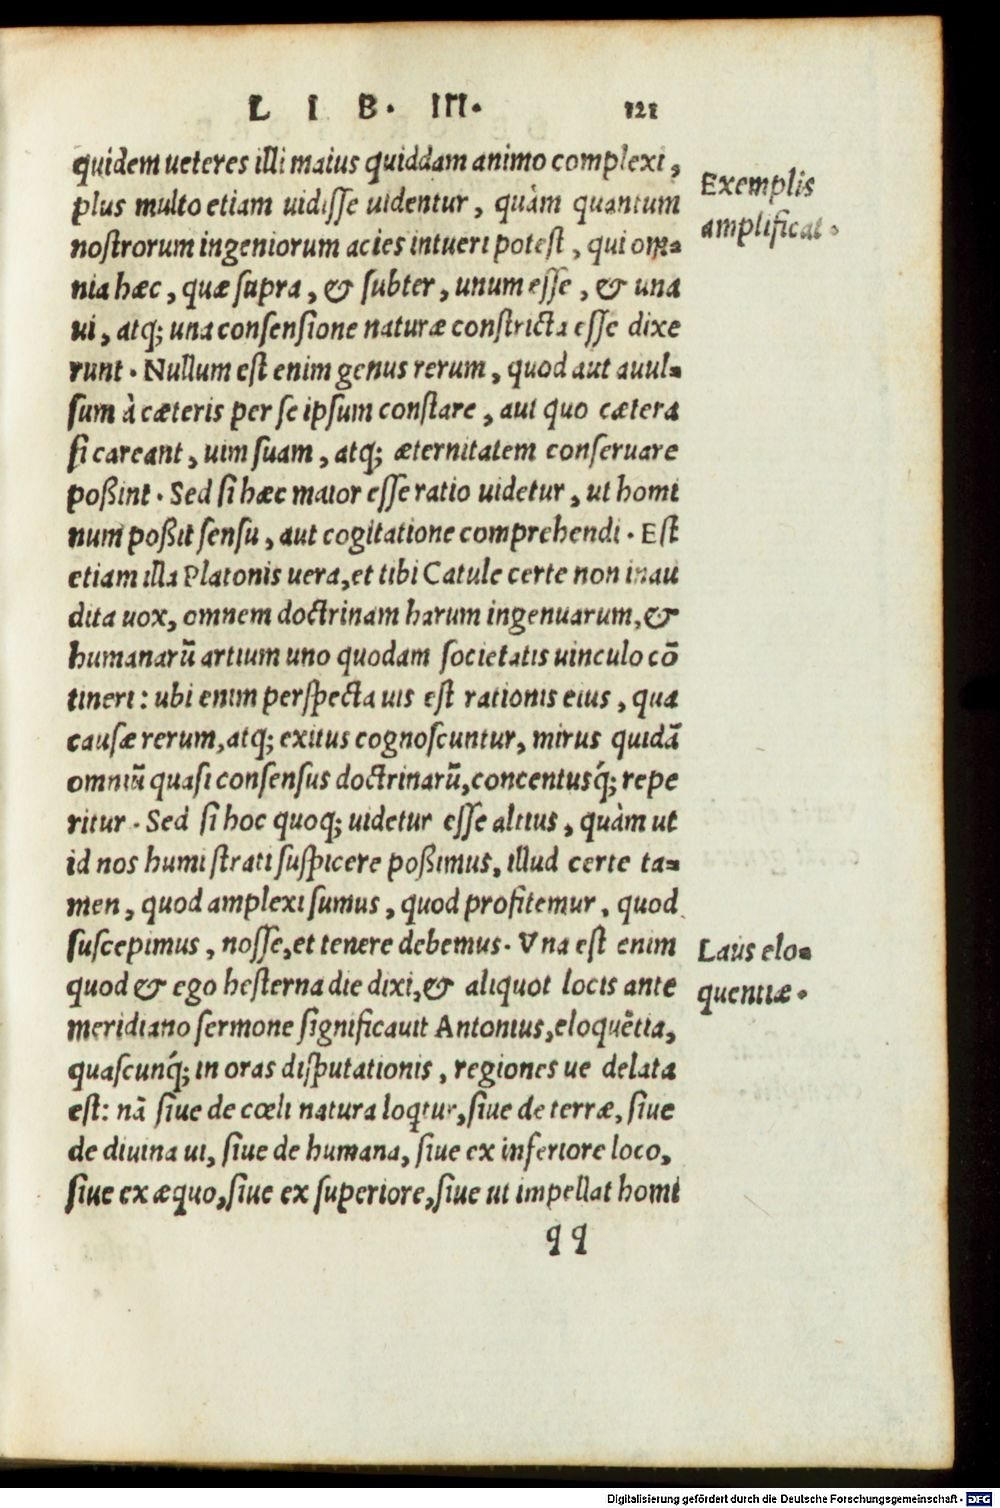 LIB. III. 121
quidem ueteres illi maius quiddam animo complexi,
plus multo etiam uidisse uidentur, quàm quantum
nostrorum ingeniorum acies intueri potest, qui om-
nia hæc, quæ supra, & subter, unum esse, & una
ui, atq; una consensione naturæ constricta esse dixe
runt. Nullum est enim genus rerum, quod aut auul-
sum à cæteris per se ipsum constare, aut quo cætera
si careant, uim suam, atq; æternitatem conseruare
poßint. Sed si hæc maior esse ratio uidetur, ut homi
num poßit sensu, aut cogitatione comprehendi. Est
etiam illa Platonis uera, et tibi Catule certe non inau
dita uox, omnem doctrinam harum ingenuarum, &
humanarū artium uno quodam societatis uinculo cō
tineri: ubi enim perspecta uis est rationis eius, qua
causæ rerum, atq; exitus cognoscuntur, mirus quidā
omniū quasi consensus doctrinarū, concentusq́; repe
ritur. Sed si hoc quoq; uidetur esse altius, quàm ut
id nos humi strati suspicere poßimus, illud certe ta-
men, quod amplexi sumus, quod profitemur, quod
suscepimus, nosse, et tenere debemus. Vna est enim
quod & ego hesterna die dixi, & aliquot locis ante
meridiano sermone significauit Antonius, eloquētia,
quascunq́; in oras disputationis, regiones ue delata
est: nā siue de cœli natura loqtur, siue de terræ, siue
de diuina ui, siue de humana, siue ex inferiore loco,
siue ex æquo, siue ex superiore, siue ut impellat homi
qq
Exemplis
amplificat.
Laus elo-
quentiæ.
Digitalisierung gefördert durch die Deutsche Forschungsgemeinschaft - DFG